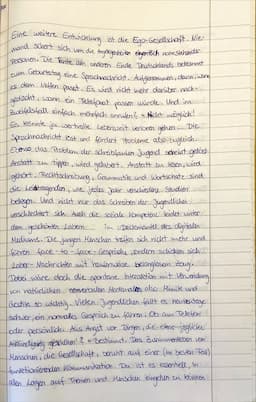 Eine weitere Entwicklung ist die Ego-Gesellschaft. Nie-
mand schert sich um die eigentlich nahestehende
Personen. Die Tante am anderen Ende Deutschlands bekommt
zum Geburtstag eine Sprachnachricht. Aufgenommen, dann wann
es dem Neffen passt. Es wird nicht mehr darüber nach-
gedacht, wann ein Telefonat passen würde. Und im
Zweifelsfall einfach mehrfach anrufen? Nicht möglich!
Es könnte ja wertvolle Lebenszeit verloren gehen. Die
Sprachnachricht löst und fördert Probleme also zugleich.
das Problem der schreibfaulen Jugend scheint gelöst.
Anstatt zu tippen, wird geredet. Anstatt zu lesen, wird
gehört. Rechtschreibung, Grammatik und Wortschatz sind
die Leidtragenden, wie jedes Jahr verschiedene Studien
belegen. Und nicht nur das Schreiben der Jugendlichen
verschlechtert sich. Auch die soziale Kompetenz leidet unter
dem gesprochenen Leben. Im des digitalen
Mediums. Die jungen Menschen treffen sich nicht mehr und
führen face-to-face-Gespräche, sondern schicken sich
lieber Nachrichten mit belanglosem Zeug.
Dabei wäre doch die spontane Interaktion mit Verwendung
von natürlichen nonverbalen Merkmalen also Mimik und
Gestik so wichtig. Vielen Jugendlichen fällt es heutzutage
schwer, ein normales Gespräch zu führen. Ob am Telefon
oder persönlich. Aus Angst vor Dingen, die ohne
? Bestimmt. Das Zusammenleben von
Menschen, die Gesellschaft, beruht auf einer (im besten Fall)
funktionierenden Kommunikation. Da ist es essentiell, in
allen Lagen auf Themen und Menschen eingehen zu können